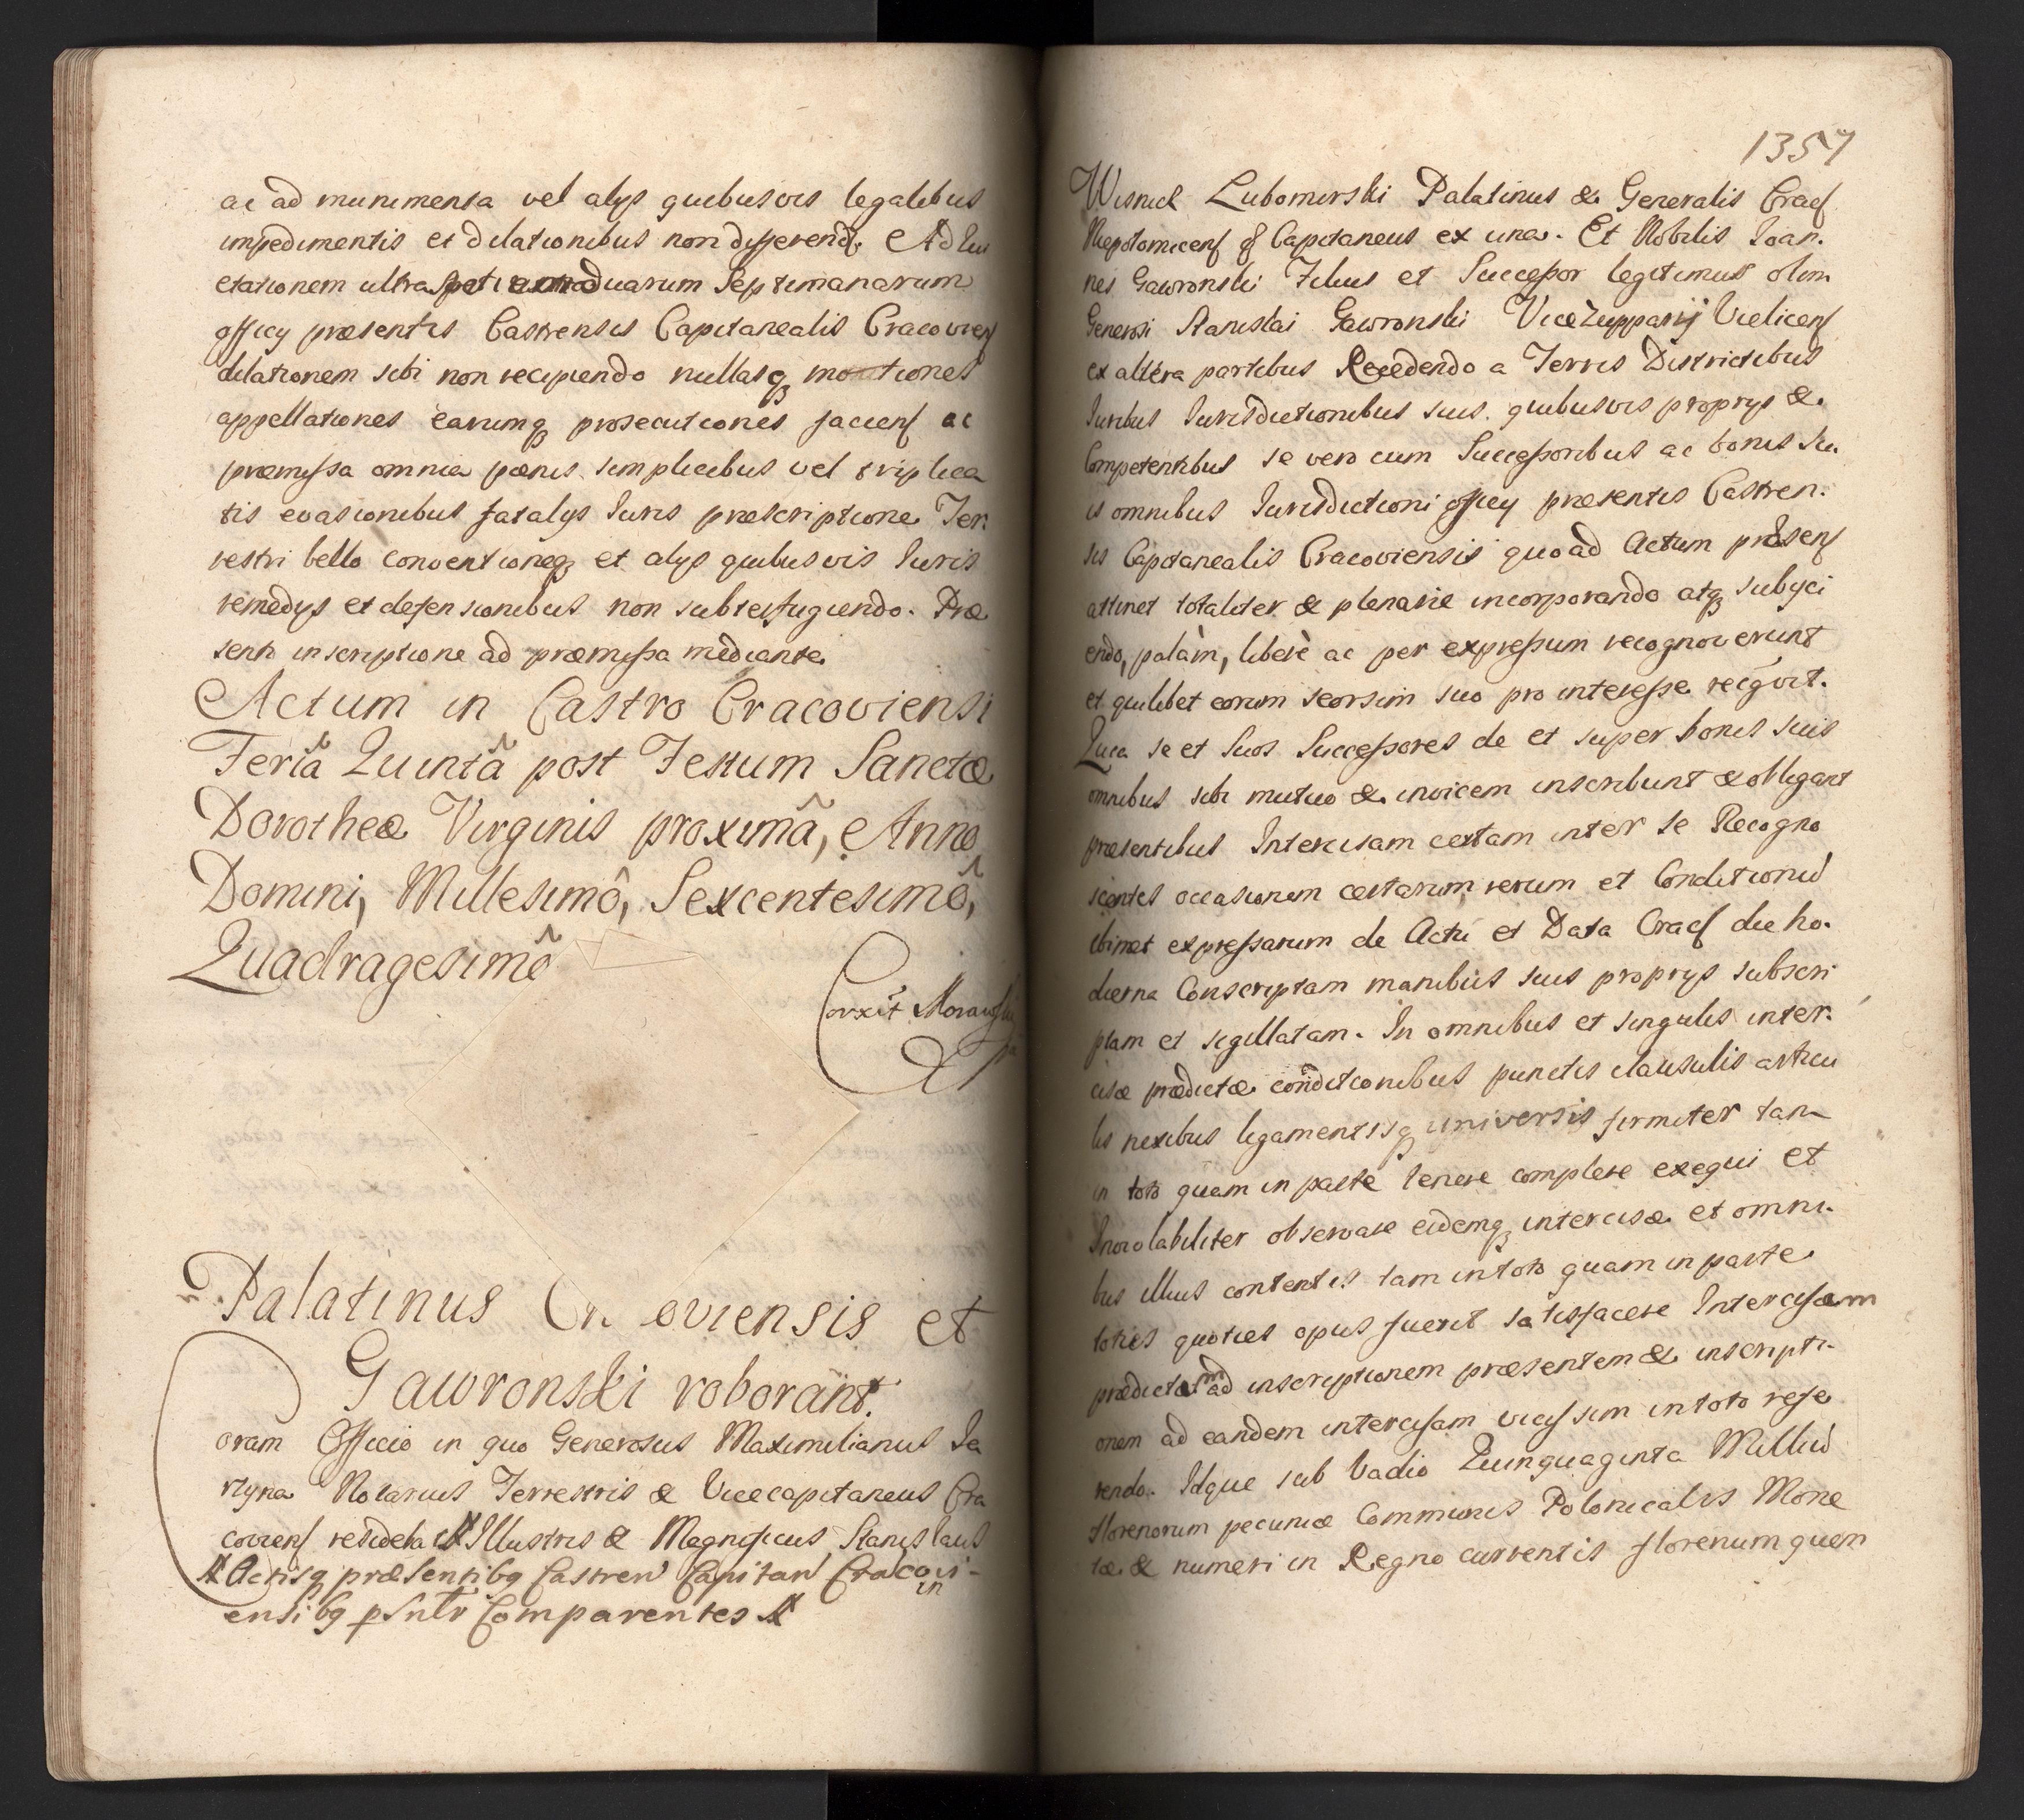 ac ad munimenta vel alys quibusvis legalibus
impedimentis et dilationibus non differend. Ad lu
etationem ultra duarum Septimanarum
officy præsentis Castrensis Capitanealis Cracovien
dilationem sibi non recipiendo nullasq motiones
appellationes earumq prosecutiones facien ac
præmissa omnia pœnis simplicibus vel triplica
tis evasionibus fatalys Iuris præscriptione Ter
restri bello conventioneq et alys quibusvis Iuris
remedys et defensionibus non subterfugiendo. Præ
senti inscriptione ad præmissa mediante.
Actum in Castro Cracoviensi
Feriâ Quintâ post Festum Sanctæ
Dorotheæ Virginis proximâ, Anno
Domini, Millesimô, Sexcentesimô,
Quadragesimô
Corxit Morawski
Palatinus Cracoviensis et
Gawronski roborant.
Coram Officio in quo Generosus Maximilianus Ia
rzyna Notarius Terrestris & Vicecapitaneus Cra
covien resideba Illustris & Magnificus Stanislaus
Actisq præsentibq Castren Capitan Cracovi-
in
ensibq psntr Comparentes
1357
Wisnick Lubomirski Palatinus & Generalis Crac
Niepolomicen q Capitaneus ex una. Et Nobilis Ioan.
nes Gawronski Filius et Successor legitimus olim
Generosi Stanislai Gawronski ViceZupparij Vielicen
ex altera partibus Recedendo a Terris Districtibus
Iuribus Iurisdictionibus suis quibusvis proprys &
Competentibus se vero cum Successoribus ac bonis su.
is omnibus Iurisdictioni officy præsentis Castren.
sis Capitanealis Cracoviensis quo ad Actum præsens
attinet totaliter & plenarie incorporando atq subyci
endo, palàm, liberè ac per expressum recognoverunt
et quilibet eorum seorsim suo pro interesse recgvit.
Quia se et Suos Successores de et super bonis suis
omnibus sibi mutuo & invicem inscribunt & obligant
præsentibus Intercisam certam inter se Recogno
scentes occasionem certarum rerum et Conditionu
ibimet expressarum de Actu et Data Crac die ho.
dierna Conscriptam manibus suis proprys subscri
ptam et sigillatam. In omnibus et singulis inter.
cisæ prædictæ conditionibus punctis clausulis articu
lis nexibus ligamentisq universis firmiter tam
in toto quam in parte tenere complere exequi et
Inviolabiliter observare eidemq intercisæ et omni.
bus illius contentis tam in toto quam in parte
toties quoties opus fuerit satisfacere Intercisam
prædictam ad inscriptionem præsentem & inscripti.
onem ad eandem intercisam vicissim in toto refe
rendo. Idque sub Vadio Quinquaginta Milliu
florenorum pecuniæ Communis Polonicalis Mone
tæ & numeri in Regno currentis florenum quem